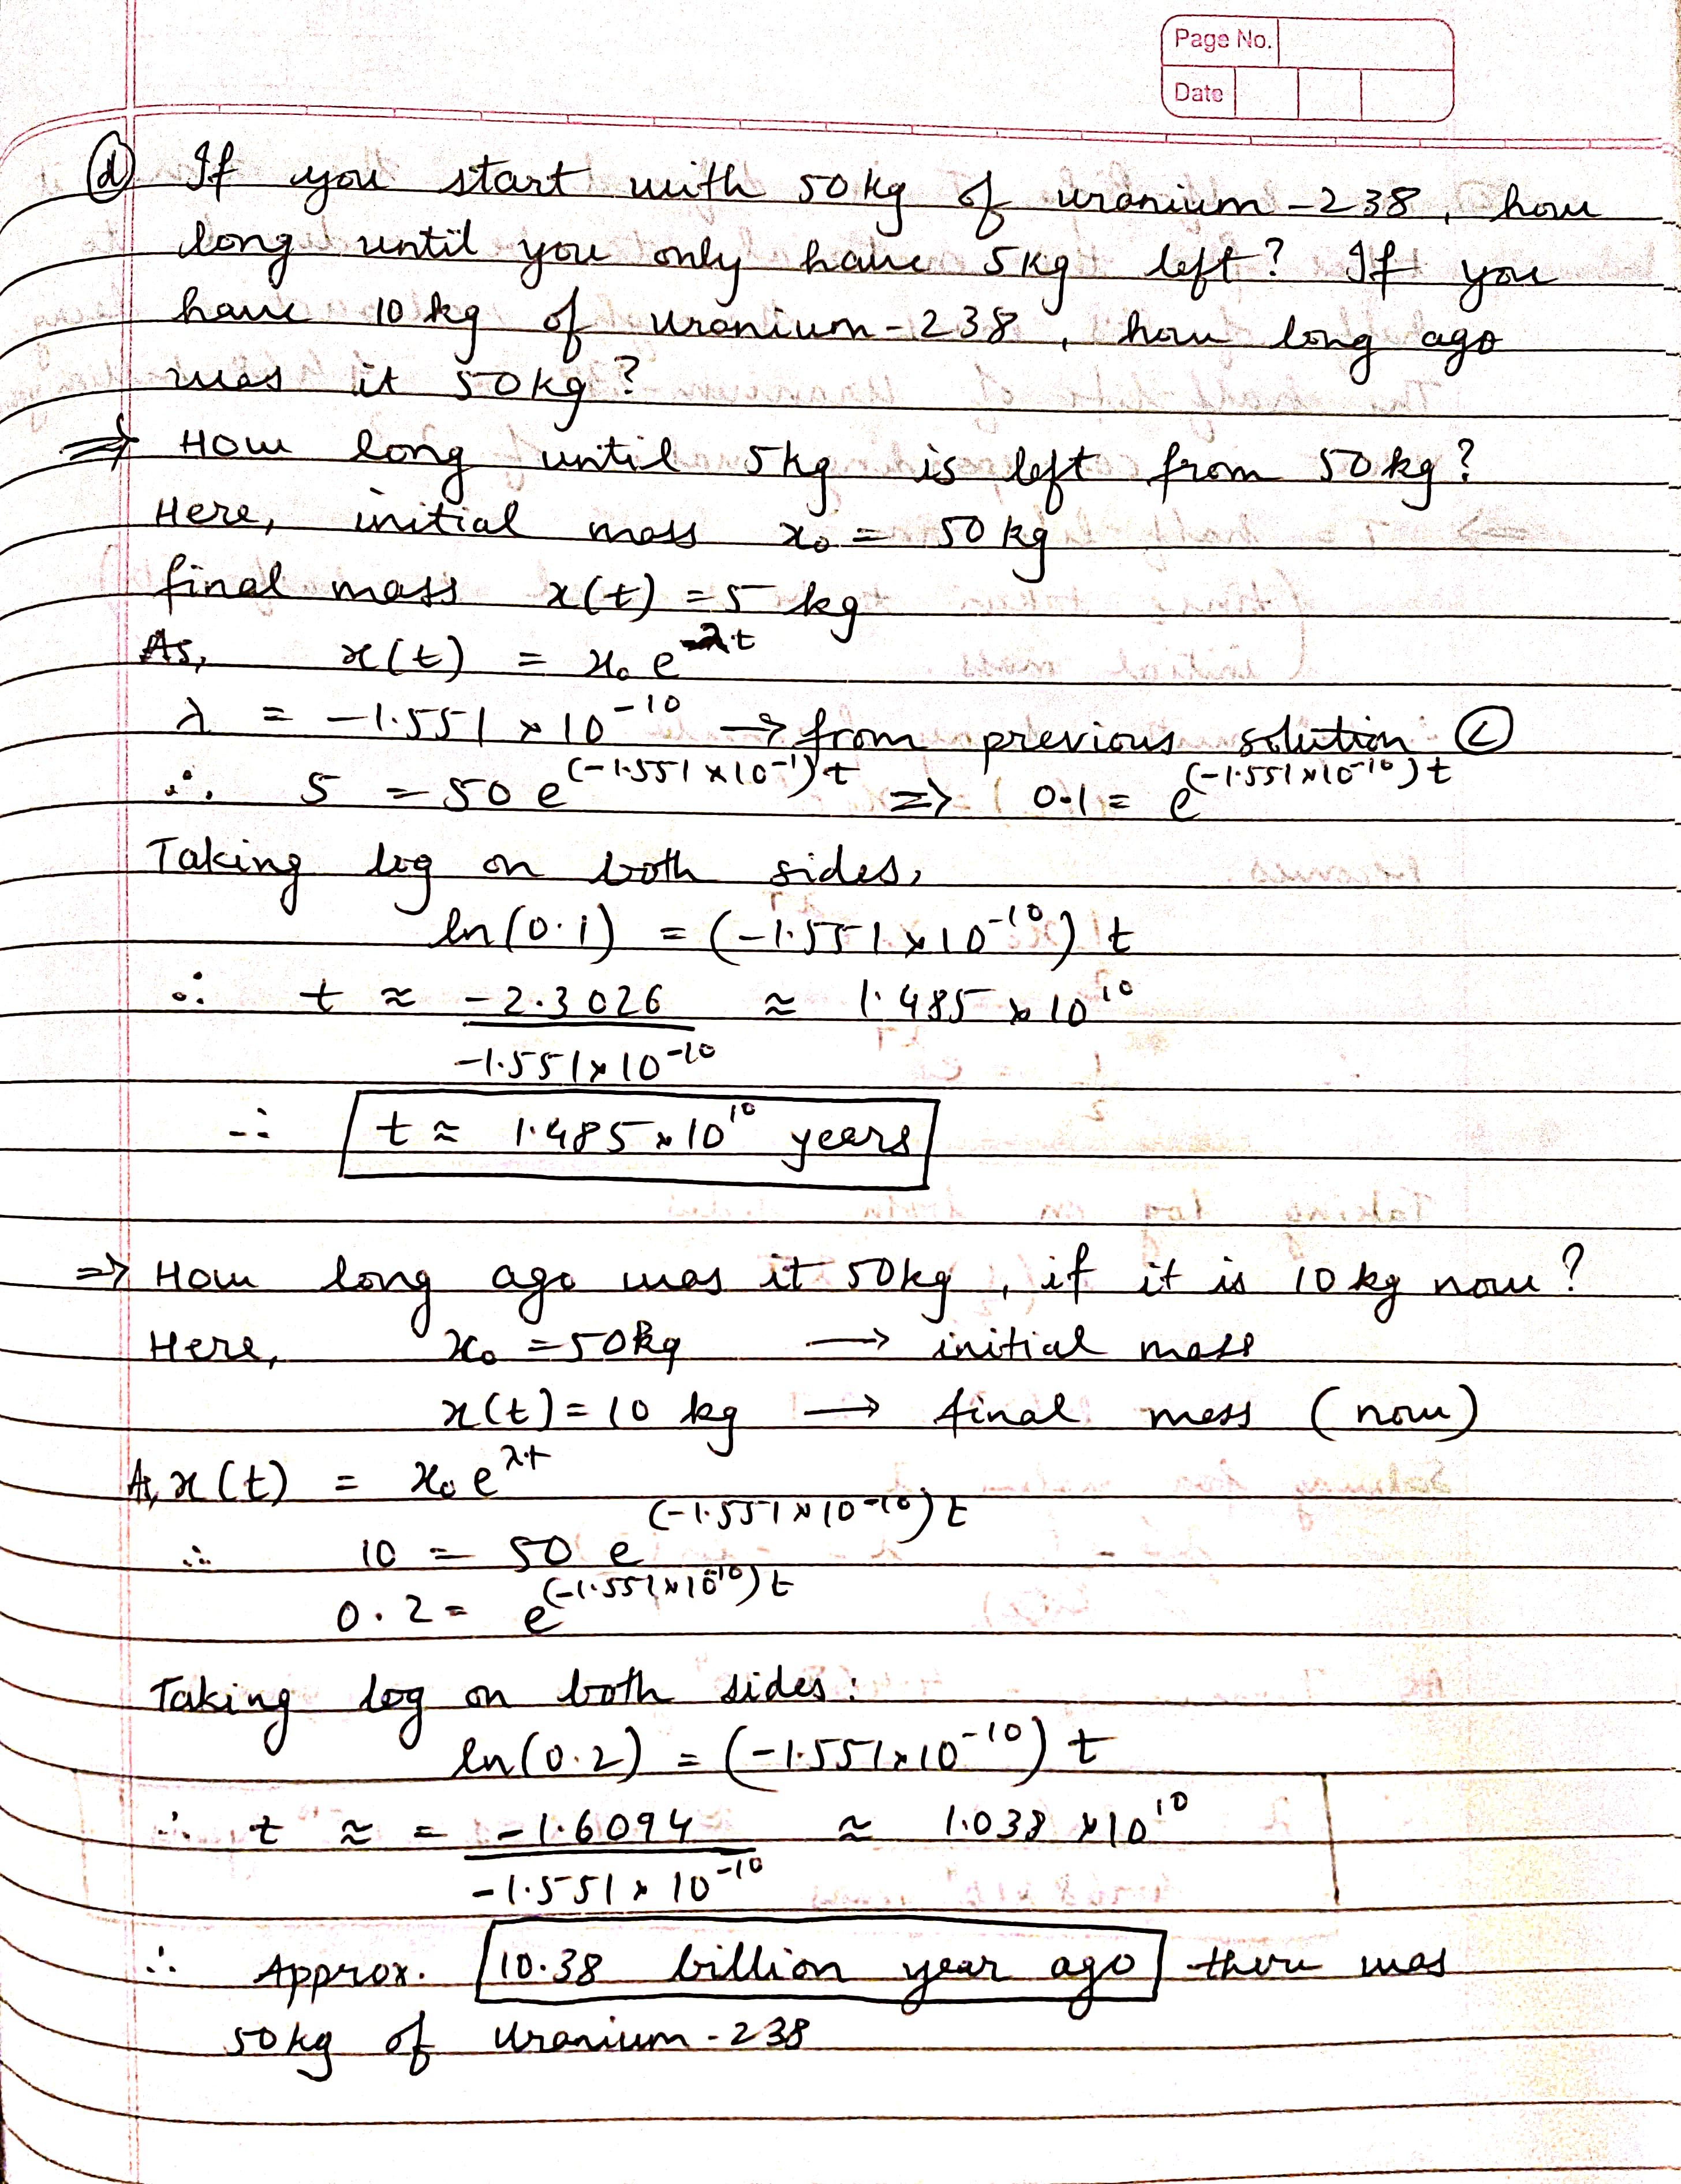 Page No.
Date
(d) If you start with 50kg of uranium-238, how
long until you only have 5kg left? If you
have 10 kg of uranium-238, how long ago
was it 50kg?
⇒ How long until 5kg is left from 50kg?
Here, initial mass x₀ = 50 kg
final mass x(t) = 5 kg
As, x(t) = x₀ e^λt
λ = -1.551 × 10⁻¹⁰ → from previous solution (c)
∴ 5 = 50 e^(-1.551×10⁻¹)t ⇒ 0.1 = e^(-1.551×10⁻¹⁰)t
Taking log on both sides,
ln(0.1) = (-1.551×10⁻¹⁰) t
∴ t ≈ -2.3026 ≈ 1.485 × 10¹⁰
-1.551×10⁻¹⁰
∴ t ≈ 1.485×10¹⁰ years
⇒ How long ago was it 50kg, if it is 10 kg now?
Here, x₀ = 50kg → initial mass
x(t) = 10 kg → final mass (now)
As, x(t) = x₀ e^λt
∴ 10 = 50 e^(-1.551×10⁻¹⁰)t
0.2 = e^(-1.551×10⁻¹⁰)t
Taking log on both sides:
ln(0.2) = (-1.551×10⁻¹⁰) t
∴ t ≈ = -1.6094 ≈ 1.038 ×10¹⁰
-1.551 × 10⁻¹⁰
∴ Approx. 10.38 billion year ago there was
50kg of Uranium-238